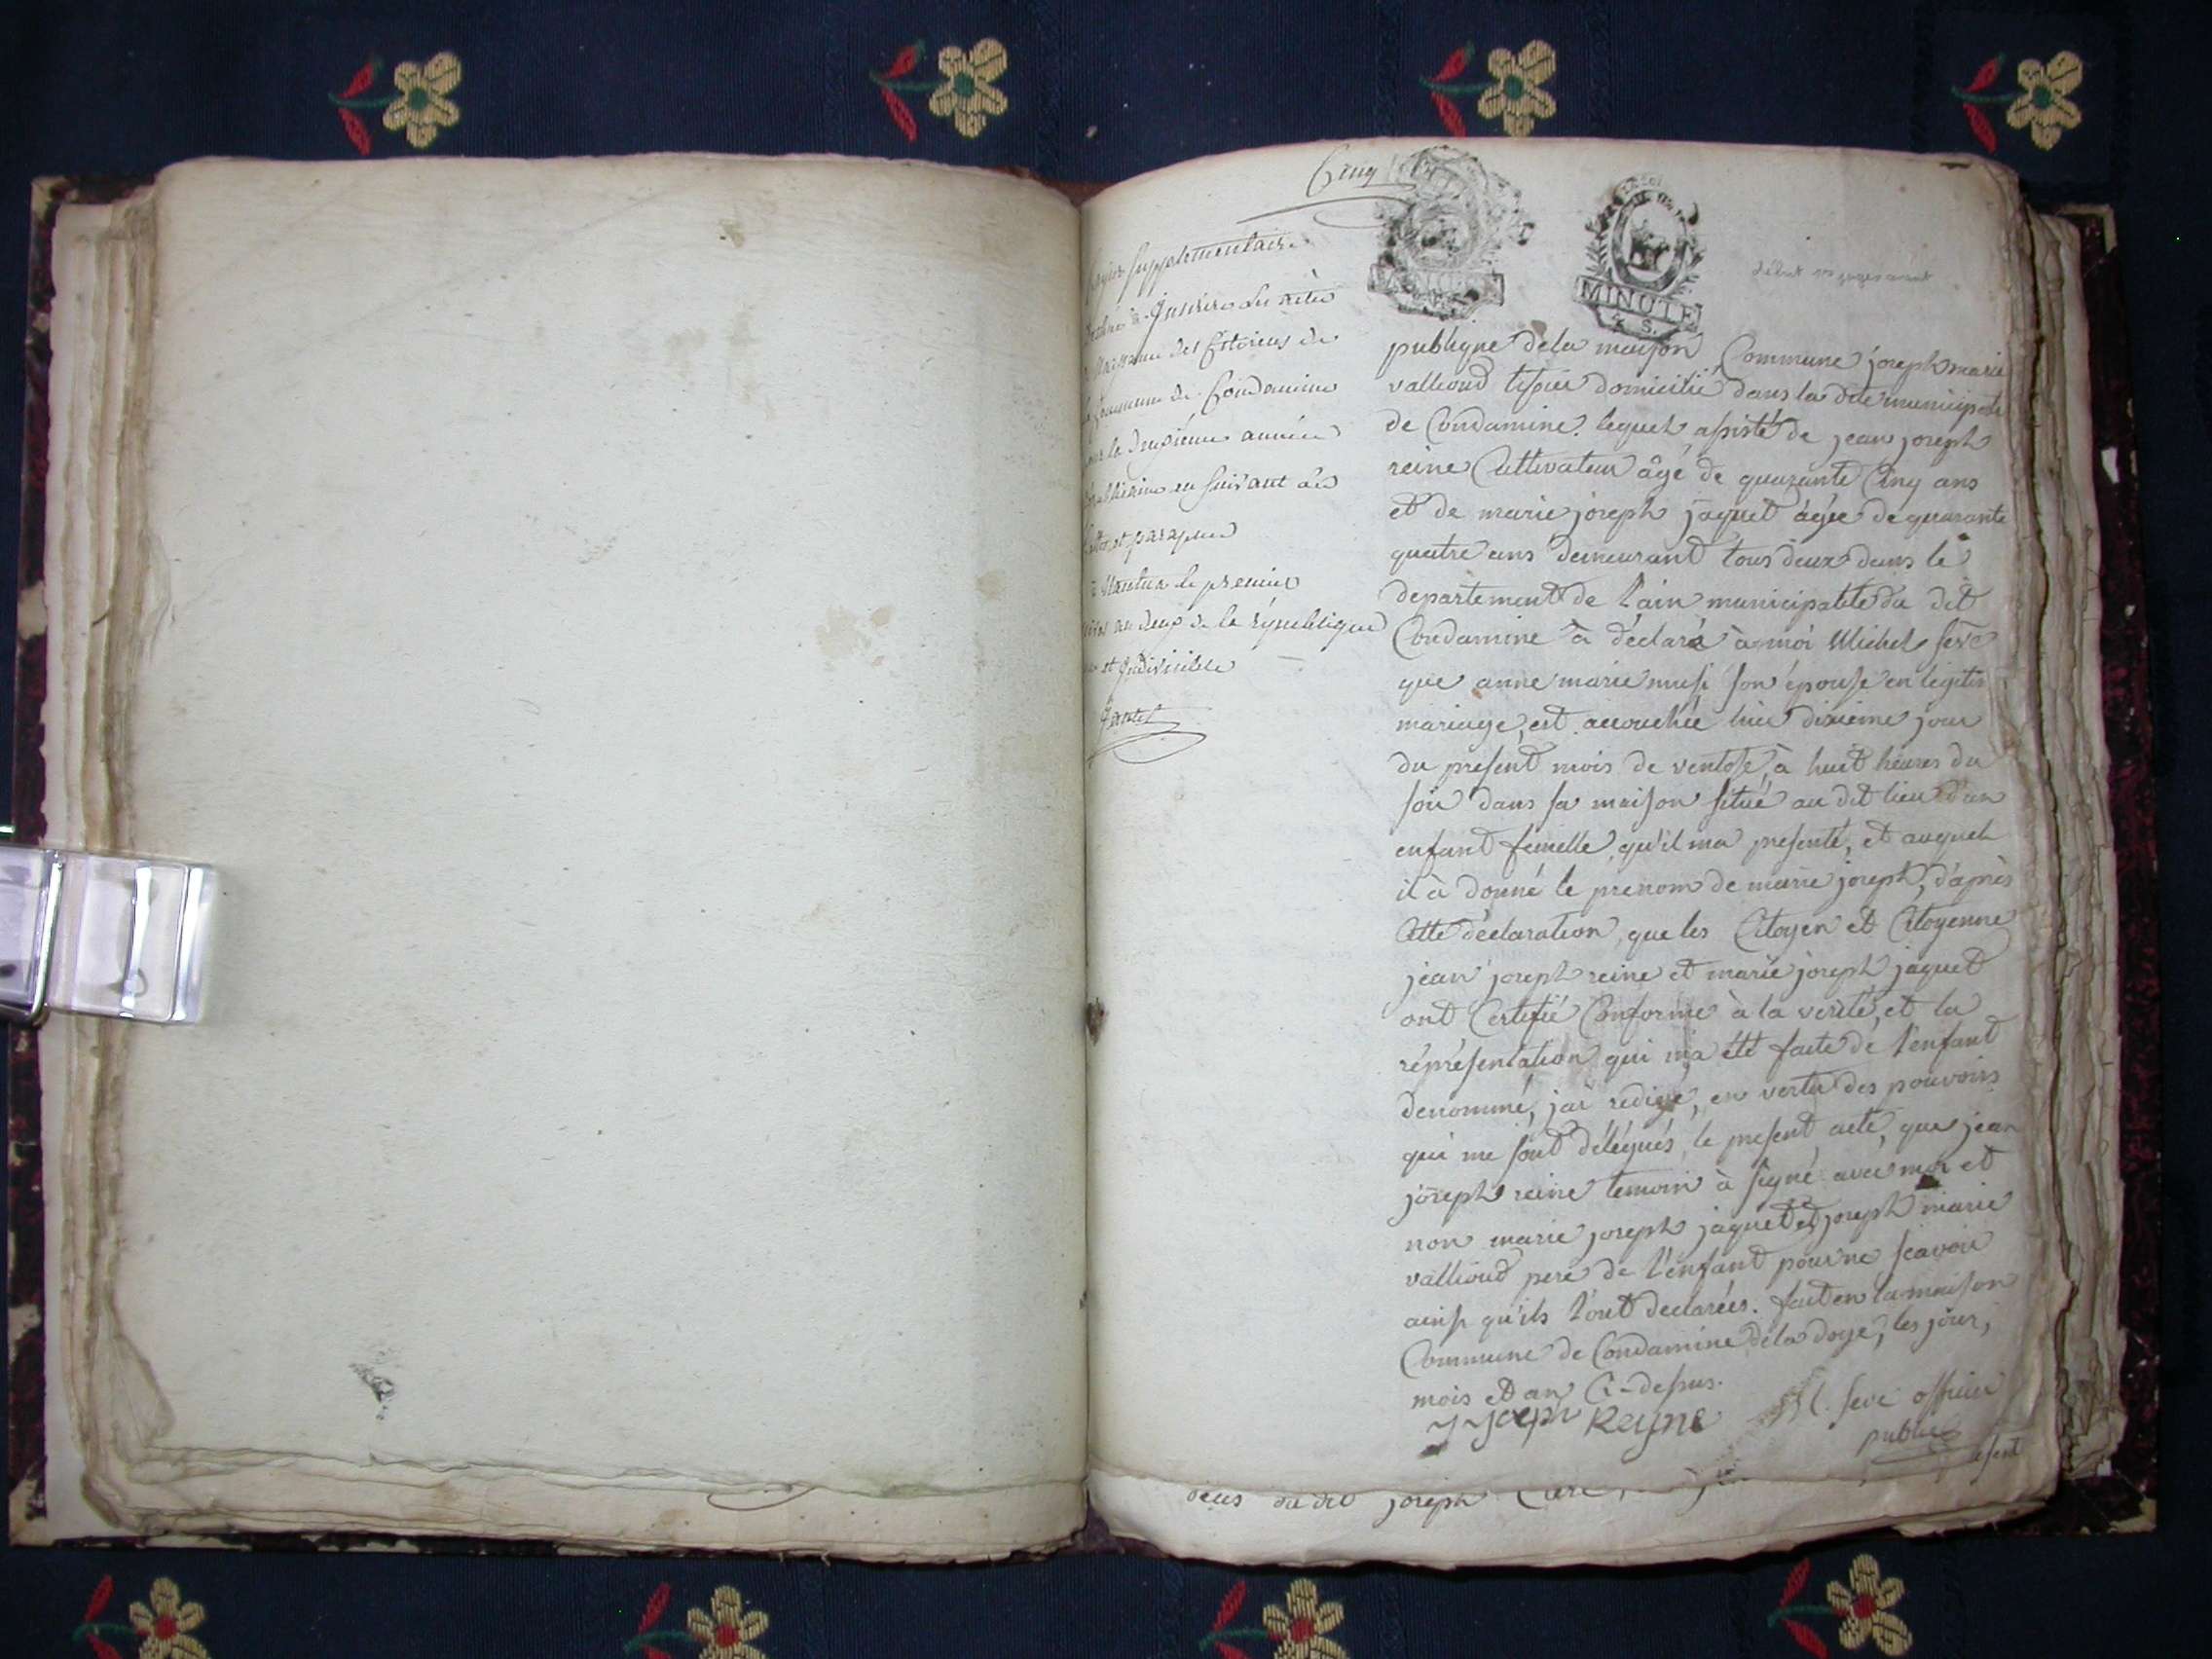 Cinq
supplementaire
a Inserer les actes
Naissance des Citoiens de
Commune de Condamine
la deuxieme année
en suivant les
et paraphes
à Nantua le premier
an deux de la république
et Indivisible
MINUTE
4 S.
publique de la maison Commune joseph marie
vallioud tisier domicilié dans la dite municipalite
de Condamine. lequel assisté de jean joseph
reine Cultivateur âgé de quarante Cinq ans
et de marie joseph jaquet âgée de quarante
quatre ans demeurant tous deux dans le
departement de l'ain municipalite du dit
Condamine à déclaré à moi Michel seve
que anne marie son épouse en legitim
mariage, est accouchée hier dixieme jour
du present mois de ventose, à huit heures du
soir dans sa maison situé au dit lieu d'un
enfant femelle, qu'il ma presenté, et auquel
il à donné le prenom de marie joseph, d'après
Cette déclaration, que les Citoyen et Citoyenne
jean joseph reine et marie joseph jaquet
ont Certifié Conforme à la verité, et la
réprésentation qui m'a été faite de l'enfant
denommé, j'ai redigé, en vertu des pouvoirs
qui me sont délégués, le present acte, que jean
joseph reine temoin à signé avec moi et
non marie joseph jaquet et joseph marie
vallioud pere de l'enfant pour ne scavoir
ainsi qu'ils l'ont declarées. fait en la maison
Commune de Condamine de la doye, les jour,
mois et an Ci-dessus.
J Joseph Reyne M. seve officier
public
du dit joseph